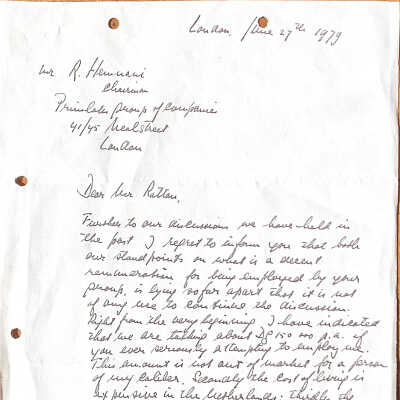 London, June 27th 1979
Mr R. Hemnani
Chairman
Primlaks group of companies
41/45 Neal street
London
Dear Mr Rattan,
Further to our discussions we have held in
the past I regret to inform you that both
our standpoints on what is a decent
remuneration for being employed by your
group, is lying so far apart that it is not
of any use to continue the discussion.
Right from the very beginning I have indicated
that we are talking about 150 000 p.a. if
you ever seriously attempting to employ me.
This amount is not out of market for a person
of my caliber. Secondly the cost of living is
expensive in the Netherlands. Thirdly the